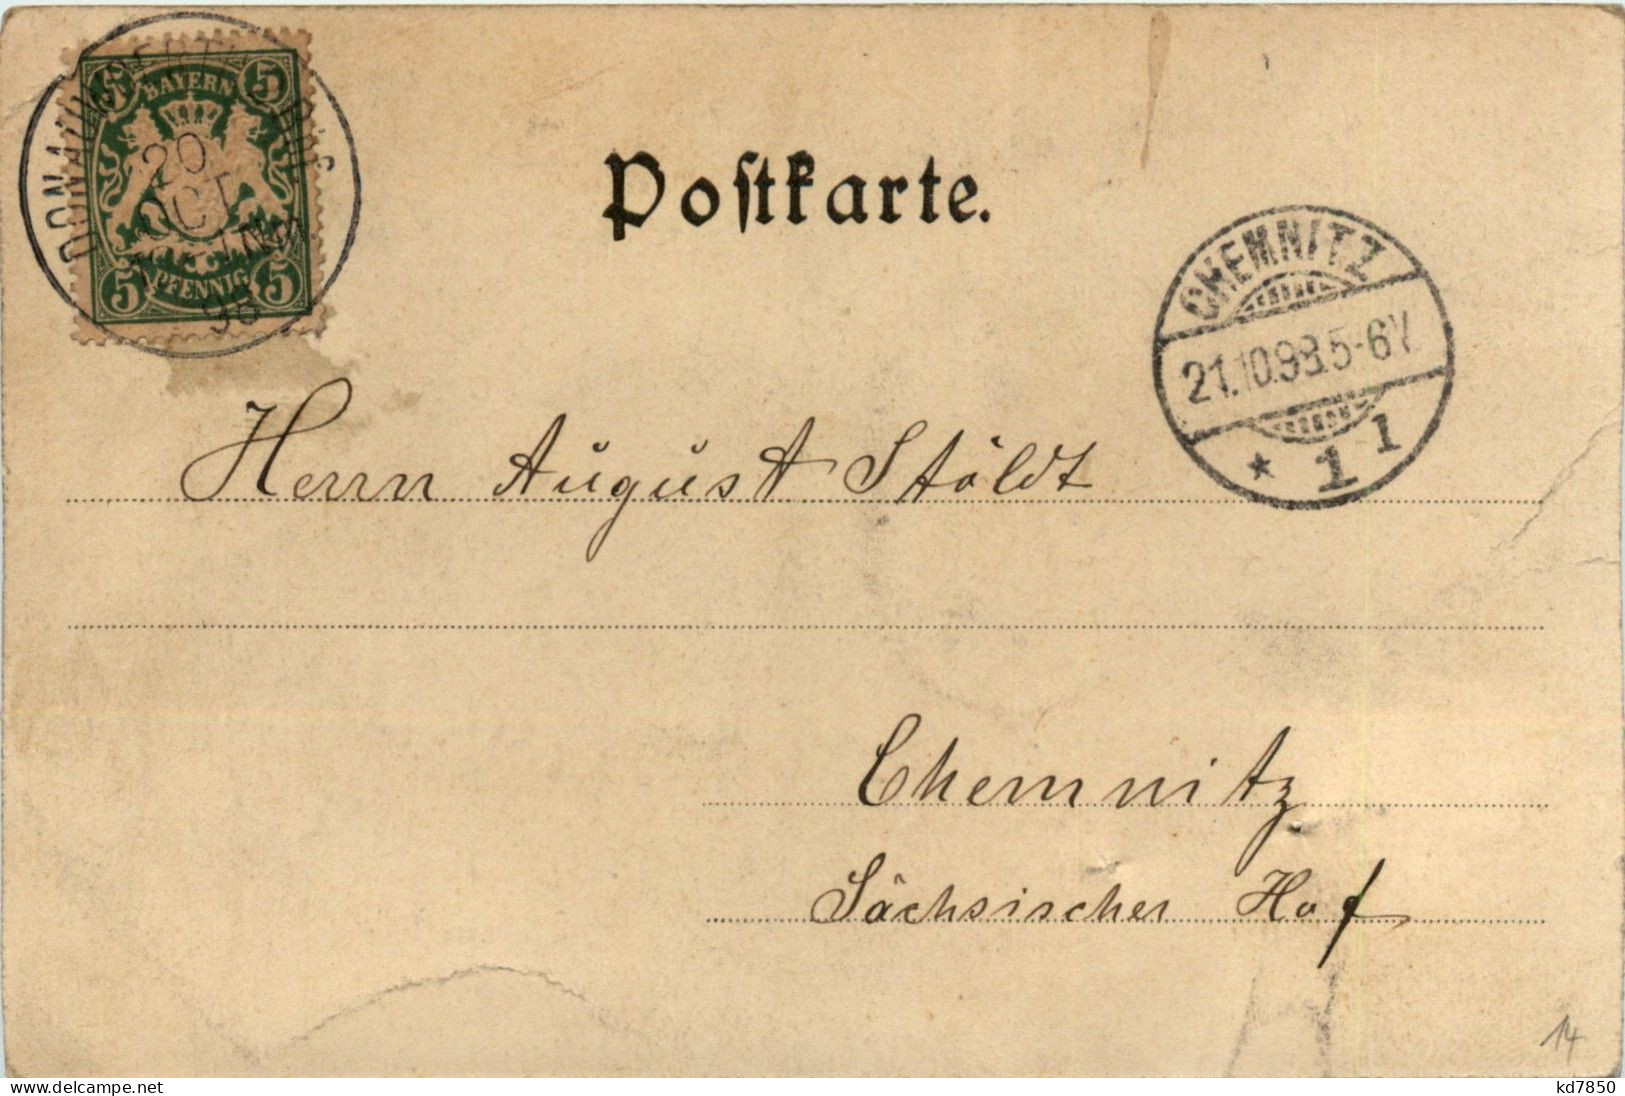 BAYERN
5 5
5 PFENNIG 5
20
OCT
98
Postkarte.
CHEMNITZ
21.10.98.5-6V.
* 1 1
Herrn August Stöldt
Chemnitz
Sächsischer Hof
14
www.delcampe.net
kd7850